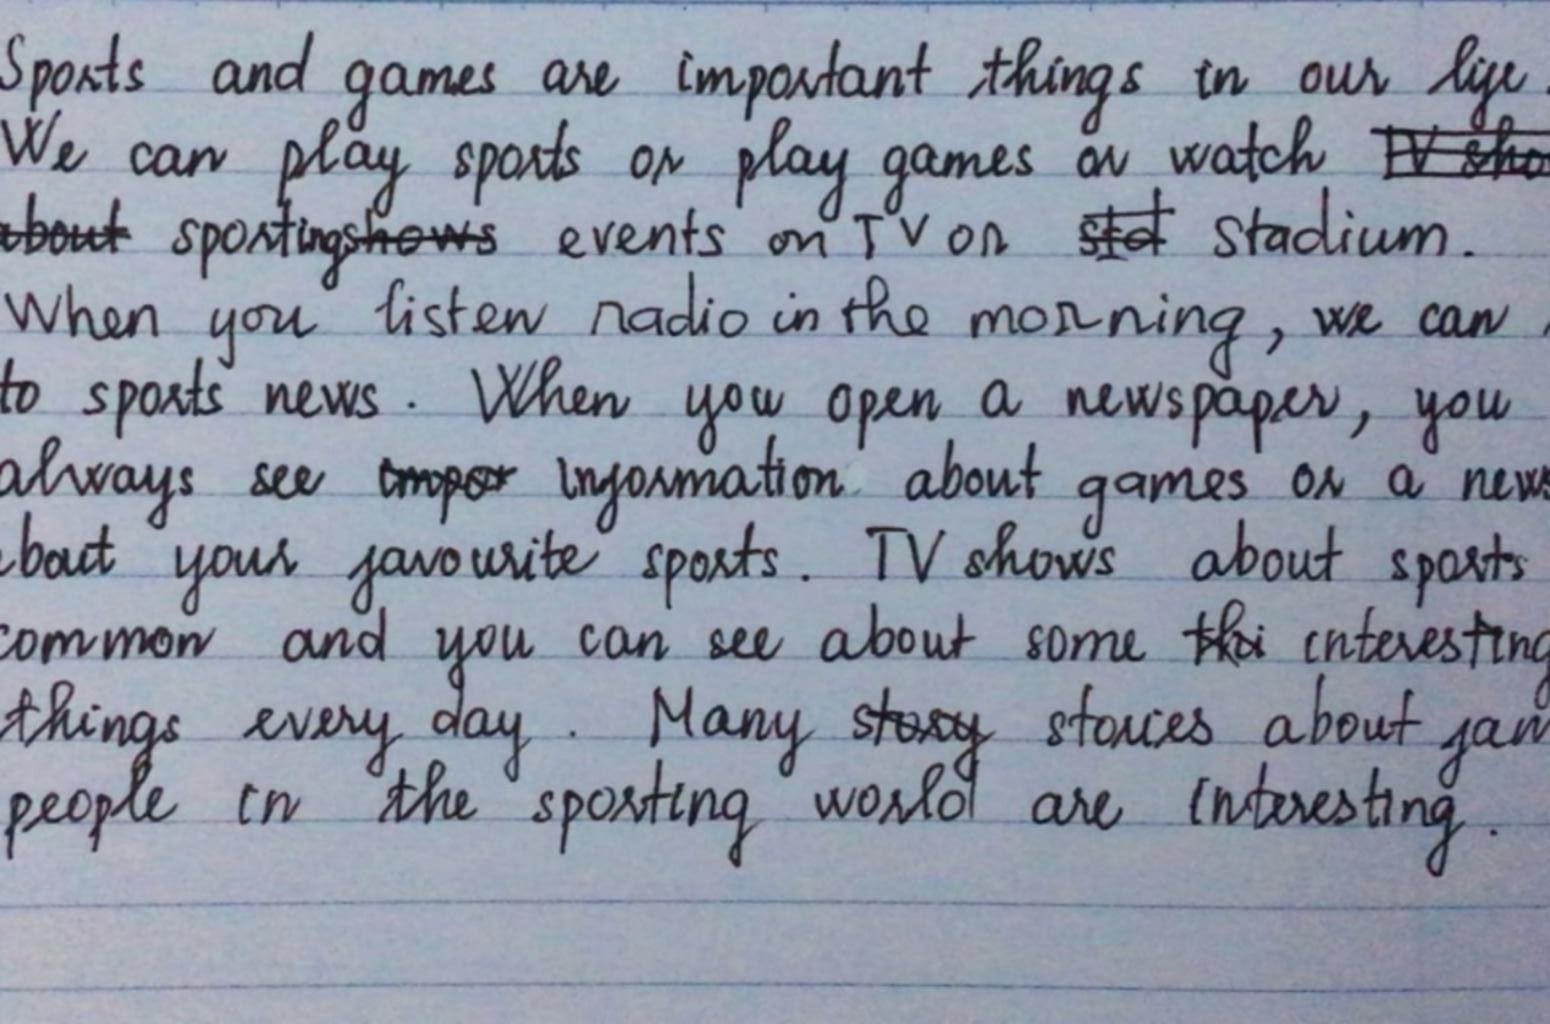 Sports and games are important things in our life.
We can play sports or play games or watch TV sho
about sportingshows events on TV or std stadium.
When you listen radio in the morning, we can
to sports news. When you open a newspaper, you
always see impor information about games or a news
bout your favourite sports. TV shows about sports
common and you can see about some thi interesting
things every day. Many story stories about fam
people in the sporting world are interesting.